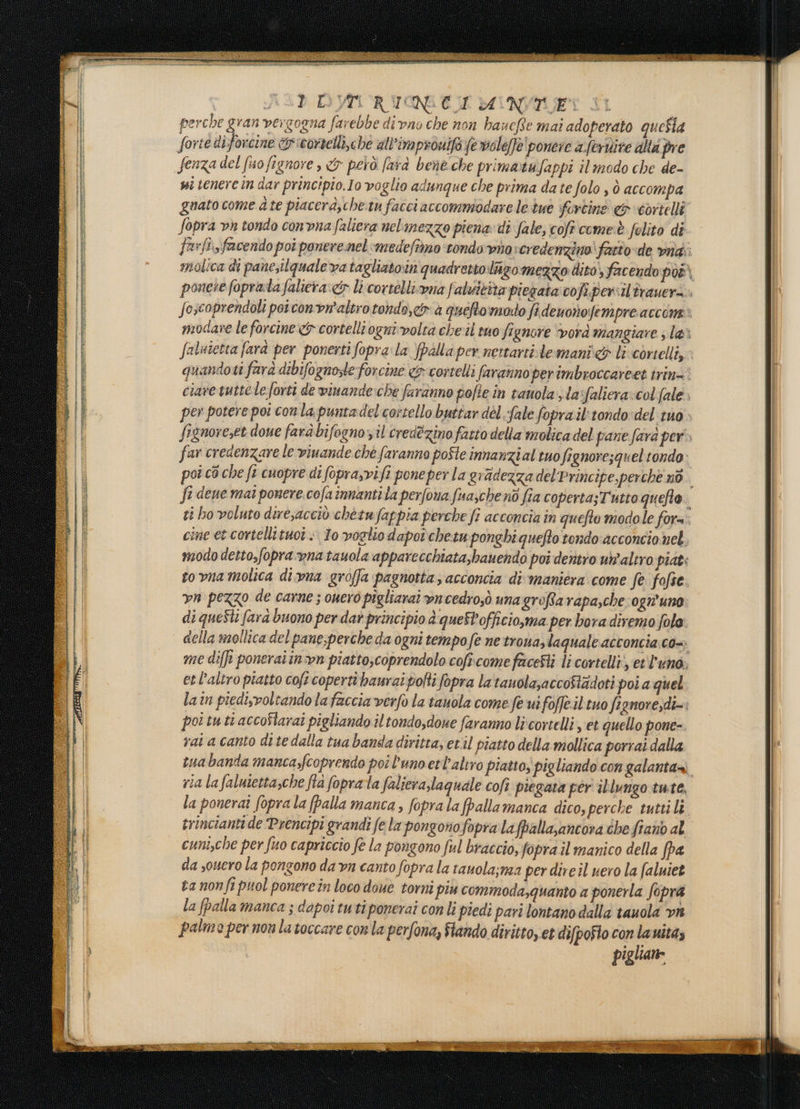 IL TRINCIANTE
perche gran vergogna sarebbe di vno che non hauesse mai adoperato questa
sorte di forcine & cortelli, che all'improuiso se volesse ponere a seruire alla pre
senza del suo signore, & però sarà bene che prima tu sappi il modo che de-
ui tenere in dar principio. Io voglio adunque che prima da te solo, ò accompa
gnato come à te piacerà, che tu facci accommodare le tue forcine & cortelli
sopra vn tondo con vna saliera nel mezzo piena di sale, cosi come è solito di
farsi, facendo poi ponere nel medesimo tondo vno credenzino fatto de vna
molica di pane, ilquale va tagliato in quadretto lũgo mezzo dito, facendo poi
ponere sopra la saliera & li cortelli vna saluietta piegata cosi per il trauer-
so, coprendoli poi con vn'altro tondo, & a questo modo si deuono sempre accom
modare le forcine & cortelli ogni volta che il tuo signore vorà mangiare, la
saluietta sarà per ponerti sopra la spalla per nettarti le mani & li cortelli,
quando ti farà dibisogno, le forcine & cortelli saranno per imbroccare et trin-
ciare tutte le sorti de viuande che saranno poste in tauola, la saliera col sale
per potere poi con la punta del cortello buttar del sale sopra il tondo del tuo
signore, et doue farà bisogno, il credẽzino fatto della molica del pane sarà per
far credenzare le viuande che saranno poste innanzi al tuo signore; quel tondo
poi cō che si cuopre di sopra, vi si pone per la grãdezza del Principe, perche nō
si deue mai ponere cosa innanti la persona sua, che nō sia coperta; Tutto questo
ti ho voluto dire, acciò che tu sappia perche si acconcia in questo modo le for-
cine et cortelli tuoi. Io voglio dapoi che tu ponghi questo tondo acconcio nel
modo detto, sopra vna tauola apparecchiata, hauendo poi dentro un'altro piat
to vna molica di vna grossa pagnotta, acconcia di maniera come se fosse
vn pezzo de carne; ouero pigliarai vn cedro, ò una grossa rapa, che ogn'uno
di questi sarà buono per dar principio à quest'officio, ma per hora diremo solo
della mollica del pane, perche da ogni tempo se ne troua, laquale acconcia co-
me dissi ponerai in vn piatto, coprendolo cosi come facesti li cortelli, et l'uno,
et l'altro piatto cosi coperti haurai posti sopra la tauola, accostãdoti poi a quel
la in piedi, voltando la faccia verso la tauola come se ui fosse il tuo signore, di-
poi tu ti accostarai pigliando il tondo, doue saranno li cortelli, et quello pone-
rai a canto di te dalla tua banda diritta, et il piatto della mollica porrai dalla
tua banda manca, scoprendo poi l'uno et l'altro piatto, pigliando con galanta-
ria la saluietta, che sta sopra la saliera, laquale cosi piegata per il lungo tu te
la ponerai sopra la spalla manca, sopra la spalla manca dico, perche tutti li
trincianti de Prencipi grandi se la pongono sopra la spalla, ancora che siano al
cuni, che per suo capriccio se la pongono sul braccio, sopra il manico della spa
da, ouero la pongono da vn canto sopra la tauola; ma per dire il uero la saluiet
ta non si puol ponere in loco doue torni piu commoda, quanto a ponerla sopra
la spalla manca; dapoi tu ti ponerai con li piedi pari lontano dalla tauola vn
palmo per non la toccare con la persona, stando diritto, et disposto con la uita,
piglian-